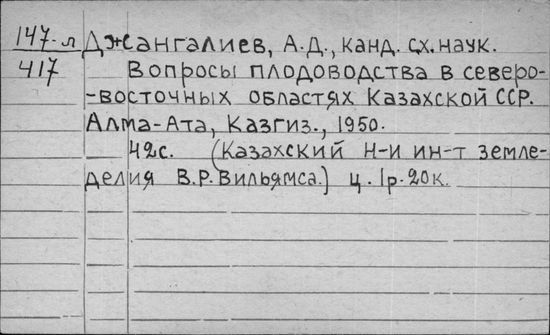 147-л Джангалиев, А.Д., канд. с.х. наук.
417 Вопросы плодоводства в северо-
-восточных областях Казахской ССР.
Алма-Ата, Казгиз., 1950.
42с. (Казахский н-и ин-т земле-
делия В.Р. Вильямса.) ц. 1р. 20к.